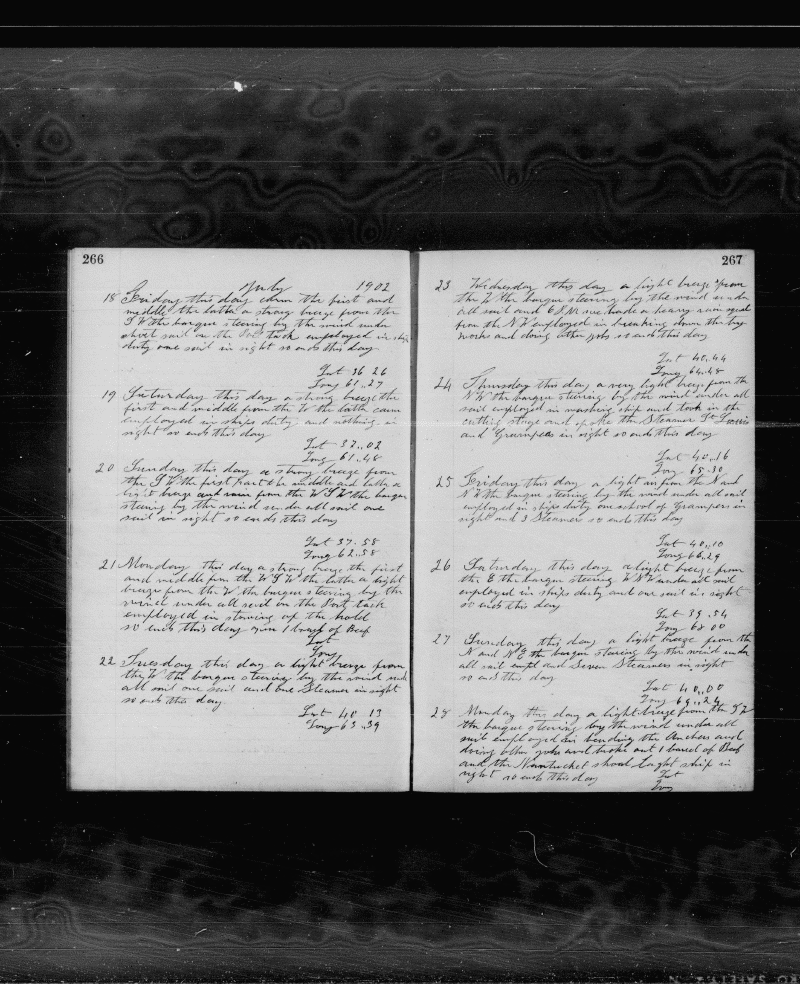 266
July 1902
18 Friday this day the first and
middle the latter a strong breeze from the
S W the barque steering by the wind under
short sail on the tack employed in ships
duty one sail in sight so ends this day
Lat 36 26
Long 61,,27
19 Saturday this day a strong breeze the
first and middle from the W the latter calm
employed in ships duty and nothing in
sight so ends this day
Lat 37,,02
Long 61,,48
20 Sunday this day a strong breeze from
the S W the first part the middle and latter a
light breeze from the W S W the barque
steering by the wind under all sail one
sail in sight so ends this day
Lat 37,,58
Long 62,,58
21 Monday this day a strong breeze the first
and middle from the W S W the latter a light
breeze from the W the barque steering by the
wind under all sail on the Port tack
employed in stowing up the hold
so ends this day 1 of Beef
Lat
Long
22 Tuesday this day a light breeze from
the W the barque steering by the wind under
all sail one sail and one Steamer in sight
so ends this day
Lat 40 13
Long 63,,39
267
23 Wednesday this day a light breeze from
the W the barque steering by the wind under
all sail and 6 P.M. we made a heavy rain squall
from the N W employed in breaking down the try
works and doing other jobs so ends this day
Lat 40,,44
Long 64,,48
24 Thursday this day a very light breeze from the
N W the barque steering by the wind under all
sail employed in washing ship and took in the
cutting stage and the Steamer St Louis
and Grampers in sight so ends this day
Lat 40,,16
Long 65,,30
25 Friday this day a light from the N and
N W the barque steering by the wind under all sail
employed in ships duty one school of Grampers in
sight and 3 Steamer so ends this day
Lat 40,,10
Long 66,,29
26 Saturday this day a light breeze from
the E the barque steering W N W under all sail
employed in ships duty and one sail in sight
so ends this day
Lat 39,,54
Long 68 00
27 Sunday this day a light breeze from the
N and N E the barque steering by the wind under
all sail and Seven Steamers in sight
so ends this day
Lat 40,,00
Long 69,,24
28 Monday this day a light breeze from the
the barque steering by the wind under all
sail employed in bending the Anchors and
doing other jobs and broke out 1 barrel of Beef
and the Nantucket shoal Laght ship in
sight so ends this day
Lat
Long